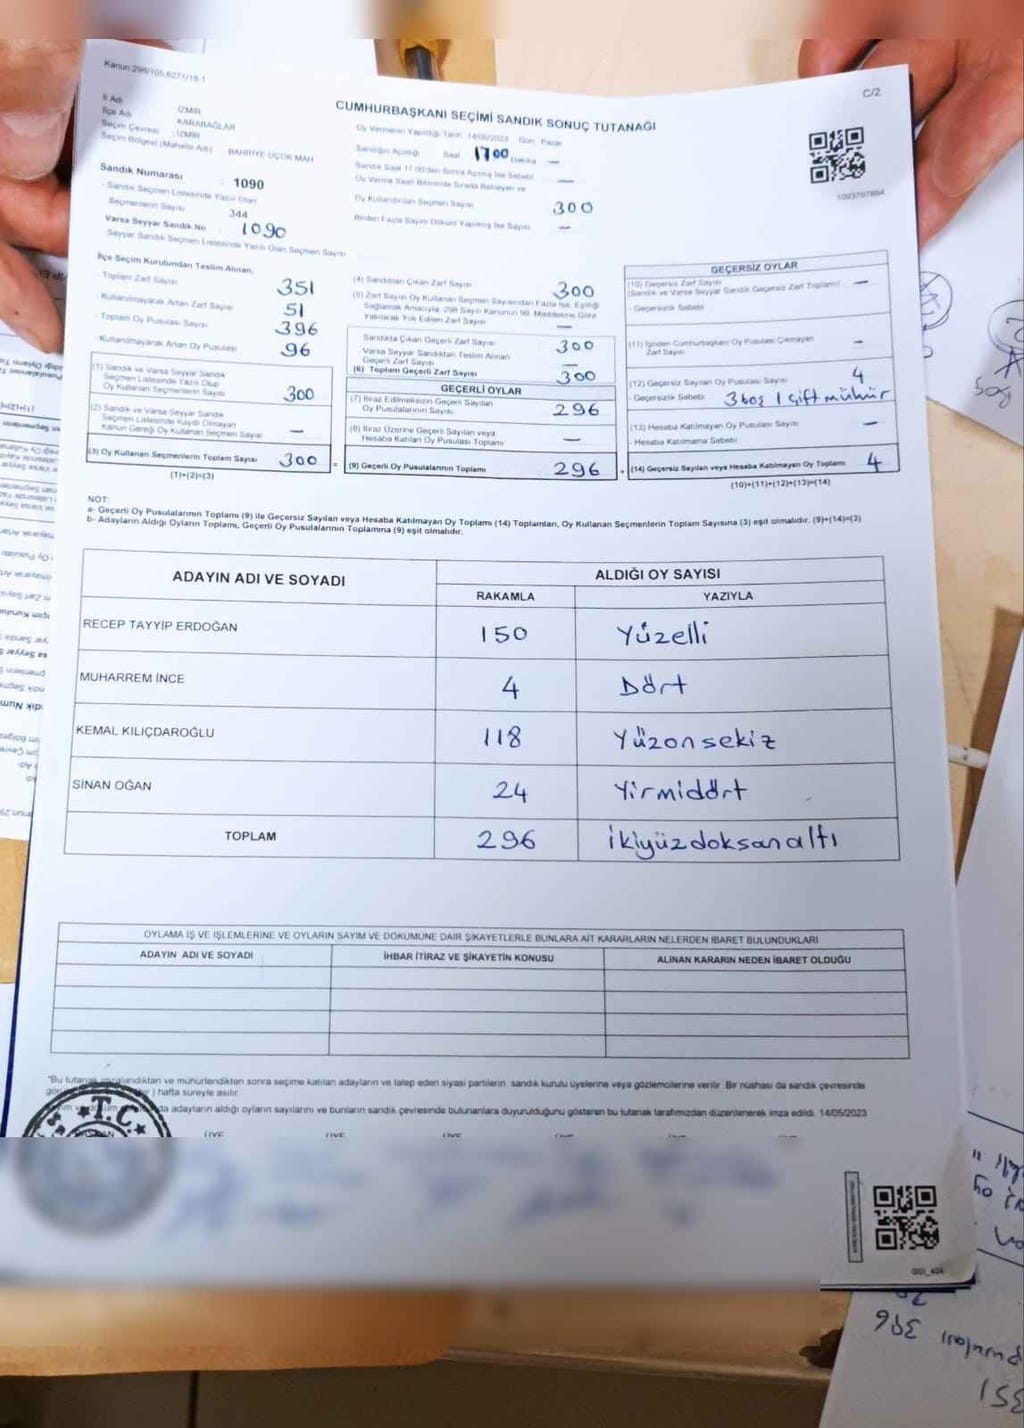 Kanun 298/105,6271/18-1
C/2
CUMHURBAŞKANI SEÇİMİ SANDIK SONUÇ TUTANAĞI
İl Adı : İZMİR
İlçe Adı : KARABAĞLAR
Seçim Çevresi : İZMİR
Seçim Bölgesi (Mahalle Adı) : BAHRİYE ÜÇOK MAH
Sandık Numarası : 1090
- Sandık Seçmen Listesinde Yazılı Olan
Seçmenlerin Sayısı : 344
Varsa Seyyar Sandık No : 1090
- Seyyar Sandık Seçmen Listesinde Yazılı Olan Seçmen Sayısı
Oy Vermenin Yapıldığı Tarih 14/05/2023 Gün Pazar
Sandığın Açıldığı Saat 1700 Dakika —
Sandık Saat 17:00'den Sonra Açılmış İse Sebebi —
Oy Verme Saati Bitiminde Sırada Bekleyen ve
Oy Kullandırılan Seçmen Sayısı 300
Birden Fazla Sayım Döküm Yapılmış İse Sayısı —
1093797884
İlçe Seçim Kurulundan Teslim Alınan;
- Toplam Zarf Sayısı 351
- Kullanılmayarak Artan Zarf Sayısı 51
- Toplam Oy Pusulası Sayısı 396
- Kullanılmayarak Artan Oy Pusulası 96
(1) Sandık ve Varsa Seyyar Sandık
Seçmen Listesinde Yazılı Olup
Oy Kullanan Seçmenlerin Sayısı 300
(2) Sandık ve Varsa Seyyar Sandık
Seçmen Listesinde Kaydı Olmayan
Kanun Gereği Oy Kullanan Seçmen Sayısı —
(3) Oy Kullanan Seçmenlerin Toplam Sayısı 300
(1)+(2)=(3)
(4) Sandıktan Çıkan Zarf Sayısı 300
(5) Zarf Sayısı Oy Kullanan Seçmen Sayısından Fazla İse, Eşitliği
Sağlamak Amacıyla, 298 Sayılı Kanunun 98. Maddesine Göre
Yakılarak Yok Edilen Zarf Sayısı —
Sandıkta Çıkan Geçerli Zarf Sayısı 300
Varsa Seyyar Sandıktan Teslim Alınan
Geçerli Zarf Sayısı —
(6) Toplam Geçerli Zarf Sayısı 300
GEÇERLİ OYLAR
(7) İtiraz Edilmeksizin Geçerli Sayılan
Oy Pusulalarının Sayısı 296
(8) İtiraz Üzerine Geçerli Sayılan veya
Hesaba Katılan Oy Pusulası Toplamı —
= (9) Geçerli Oy Pusulalarının Toplamı 296
GEÇERSİZ OYLAR
(10) Geçersiz Zarf Sayısı —
(Sandık ve Varsa Seyyar Sandık Geçersiz Zarf Toplamı)
- Geçersizlik Sebebi
(11) İçinden Cumhurbaşkanı Oy Pusulası Çıkmayan
Zarf Sayısı —
(12) Geçersiz Sayılan Oy Pusulası Sayısı 4
- Geçersizlik Sebebi 3 boş 1 çift mühür
(13) Hesaba Katılmayan Oy Pusulası Sayısı —
- Hesaba Katılmama Sebebi
+ (14) Geçersiz Sayılan veya Hesaba Katılmayan Oy Toplamı 4
(10)+(11)+(12)+(13)=(14)
NOT:
a- Geçerli Oy Pusulalarının Toplamı (9) ile Geçersiz Sayılan veya Hesaba Katılmayan Oy Toplamı (14) Toplamları, Oy Kullanan Seçmenlerin Toplam Sayısına (3) eşit olmalıdır. (9)+(14)=(3)
b- Adayların Aldığı Oyların Toplamı, Geçerli Oy Pusulalarının Toplamına (9) eşit olmalıdır.
ADAYIN ADI VE SOYADI ALDIĞI OY SAYISI
RAKAMLA YAZIYLA
RECEP TAYYİP ERDOĞAN 150 Yüzelli
MUHARREM İNCE 4 Dört
KEMAL KILIÇDAROĞLU 118 Yüzonsekiz
SİNAN OĞAN 24 Yirmidört
TOPLAM 296 İkiyüzdoksanaltı
OYLAMA İŞ VE İŞLEMLERİNE VE OYLARIN SAYIM VE DÖKÜMÜNE DAİR ŞİKAYETLERLE BUNLARA AİT KARARLARIN NELERDEN İBARET BULUNDUKLARI
ADAYIN ADI VE SOYADI İHBAR İTİRAZ VE ŞİKAYETİN KONUSU ALINAN KARARIN NEDEN İBARET OLDUĞU
"Bu tutanak imzalandıktan ve mühürlendikten sonra seçime katılan adayların ve talep eden siyasi partilerin sandık kurulu üyelerine veya gözlemcilerine verilir. Bir nüshası da sandık çevresinde
) hafta süreyle asılır.
adayların aldığı oyların sayılarını ve bunların sandık çevresinde bulunanlara duyurulduğunu gösteren bu tutanak tarafımızdan düzenlenerek imza edildi. 14/05/2023
T.C.
ÜYE ÜYE ÜYE ÜYE ÜYE
396
351